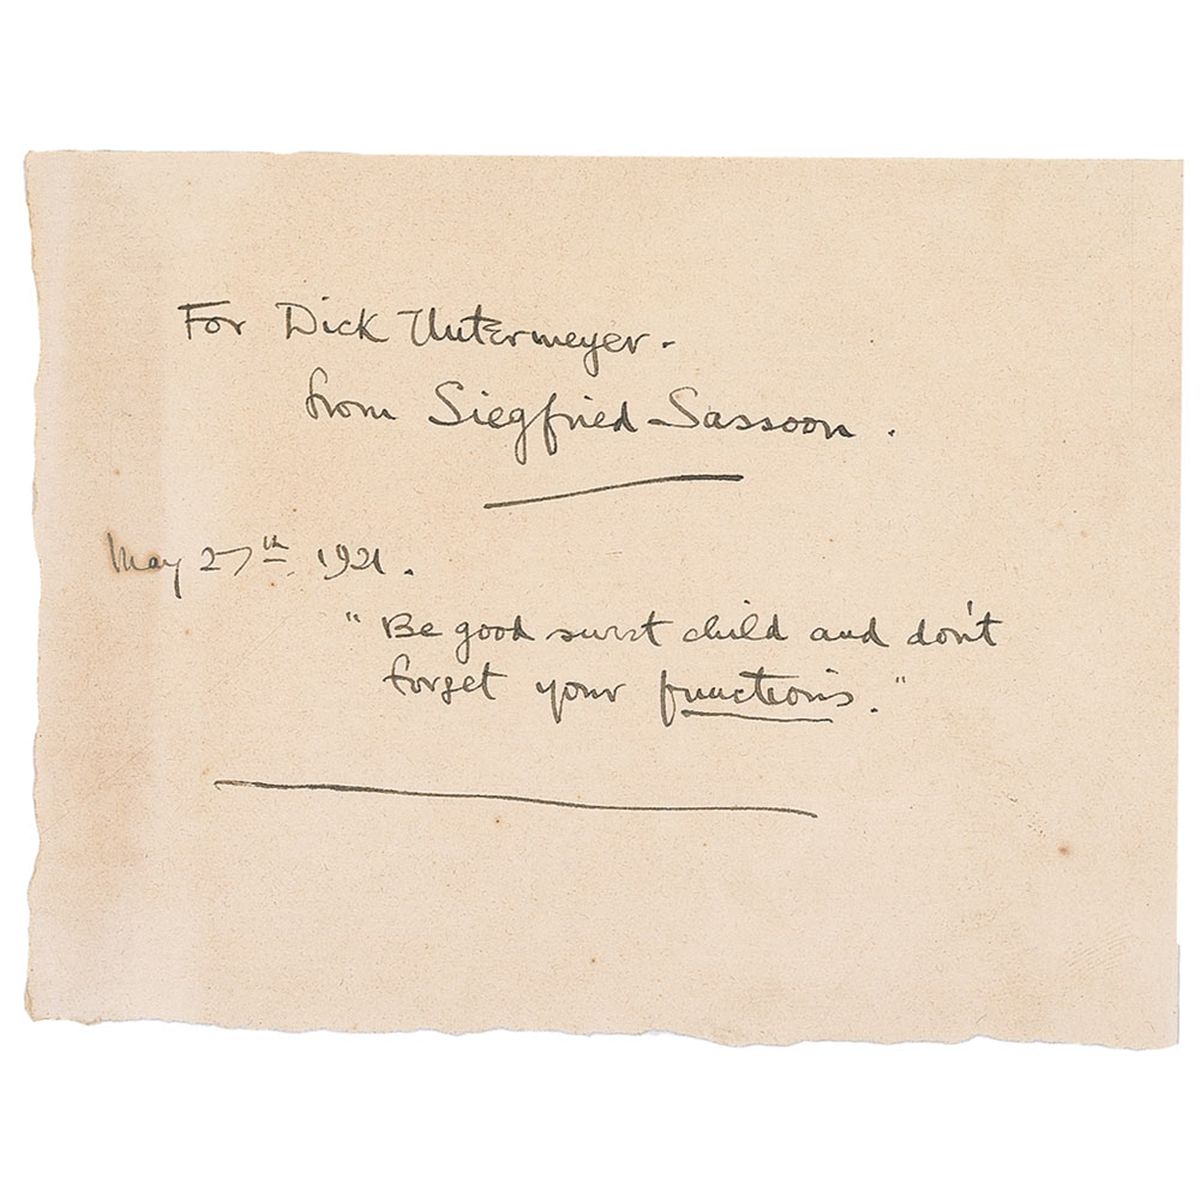 For Dick Untermeyer.
from Siegfried Sassoon.
May 27th 1921.
"Be good sweet child and don't
forget your functions."